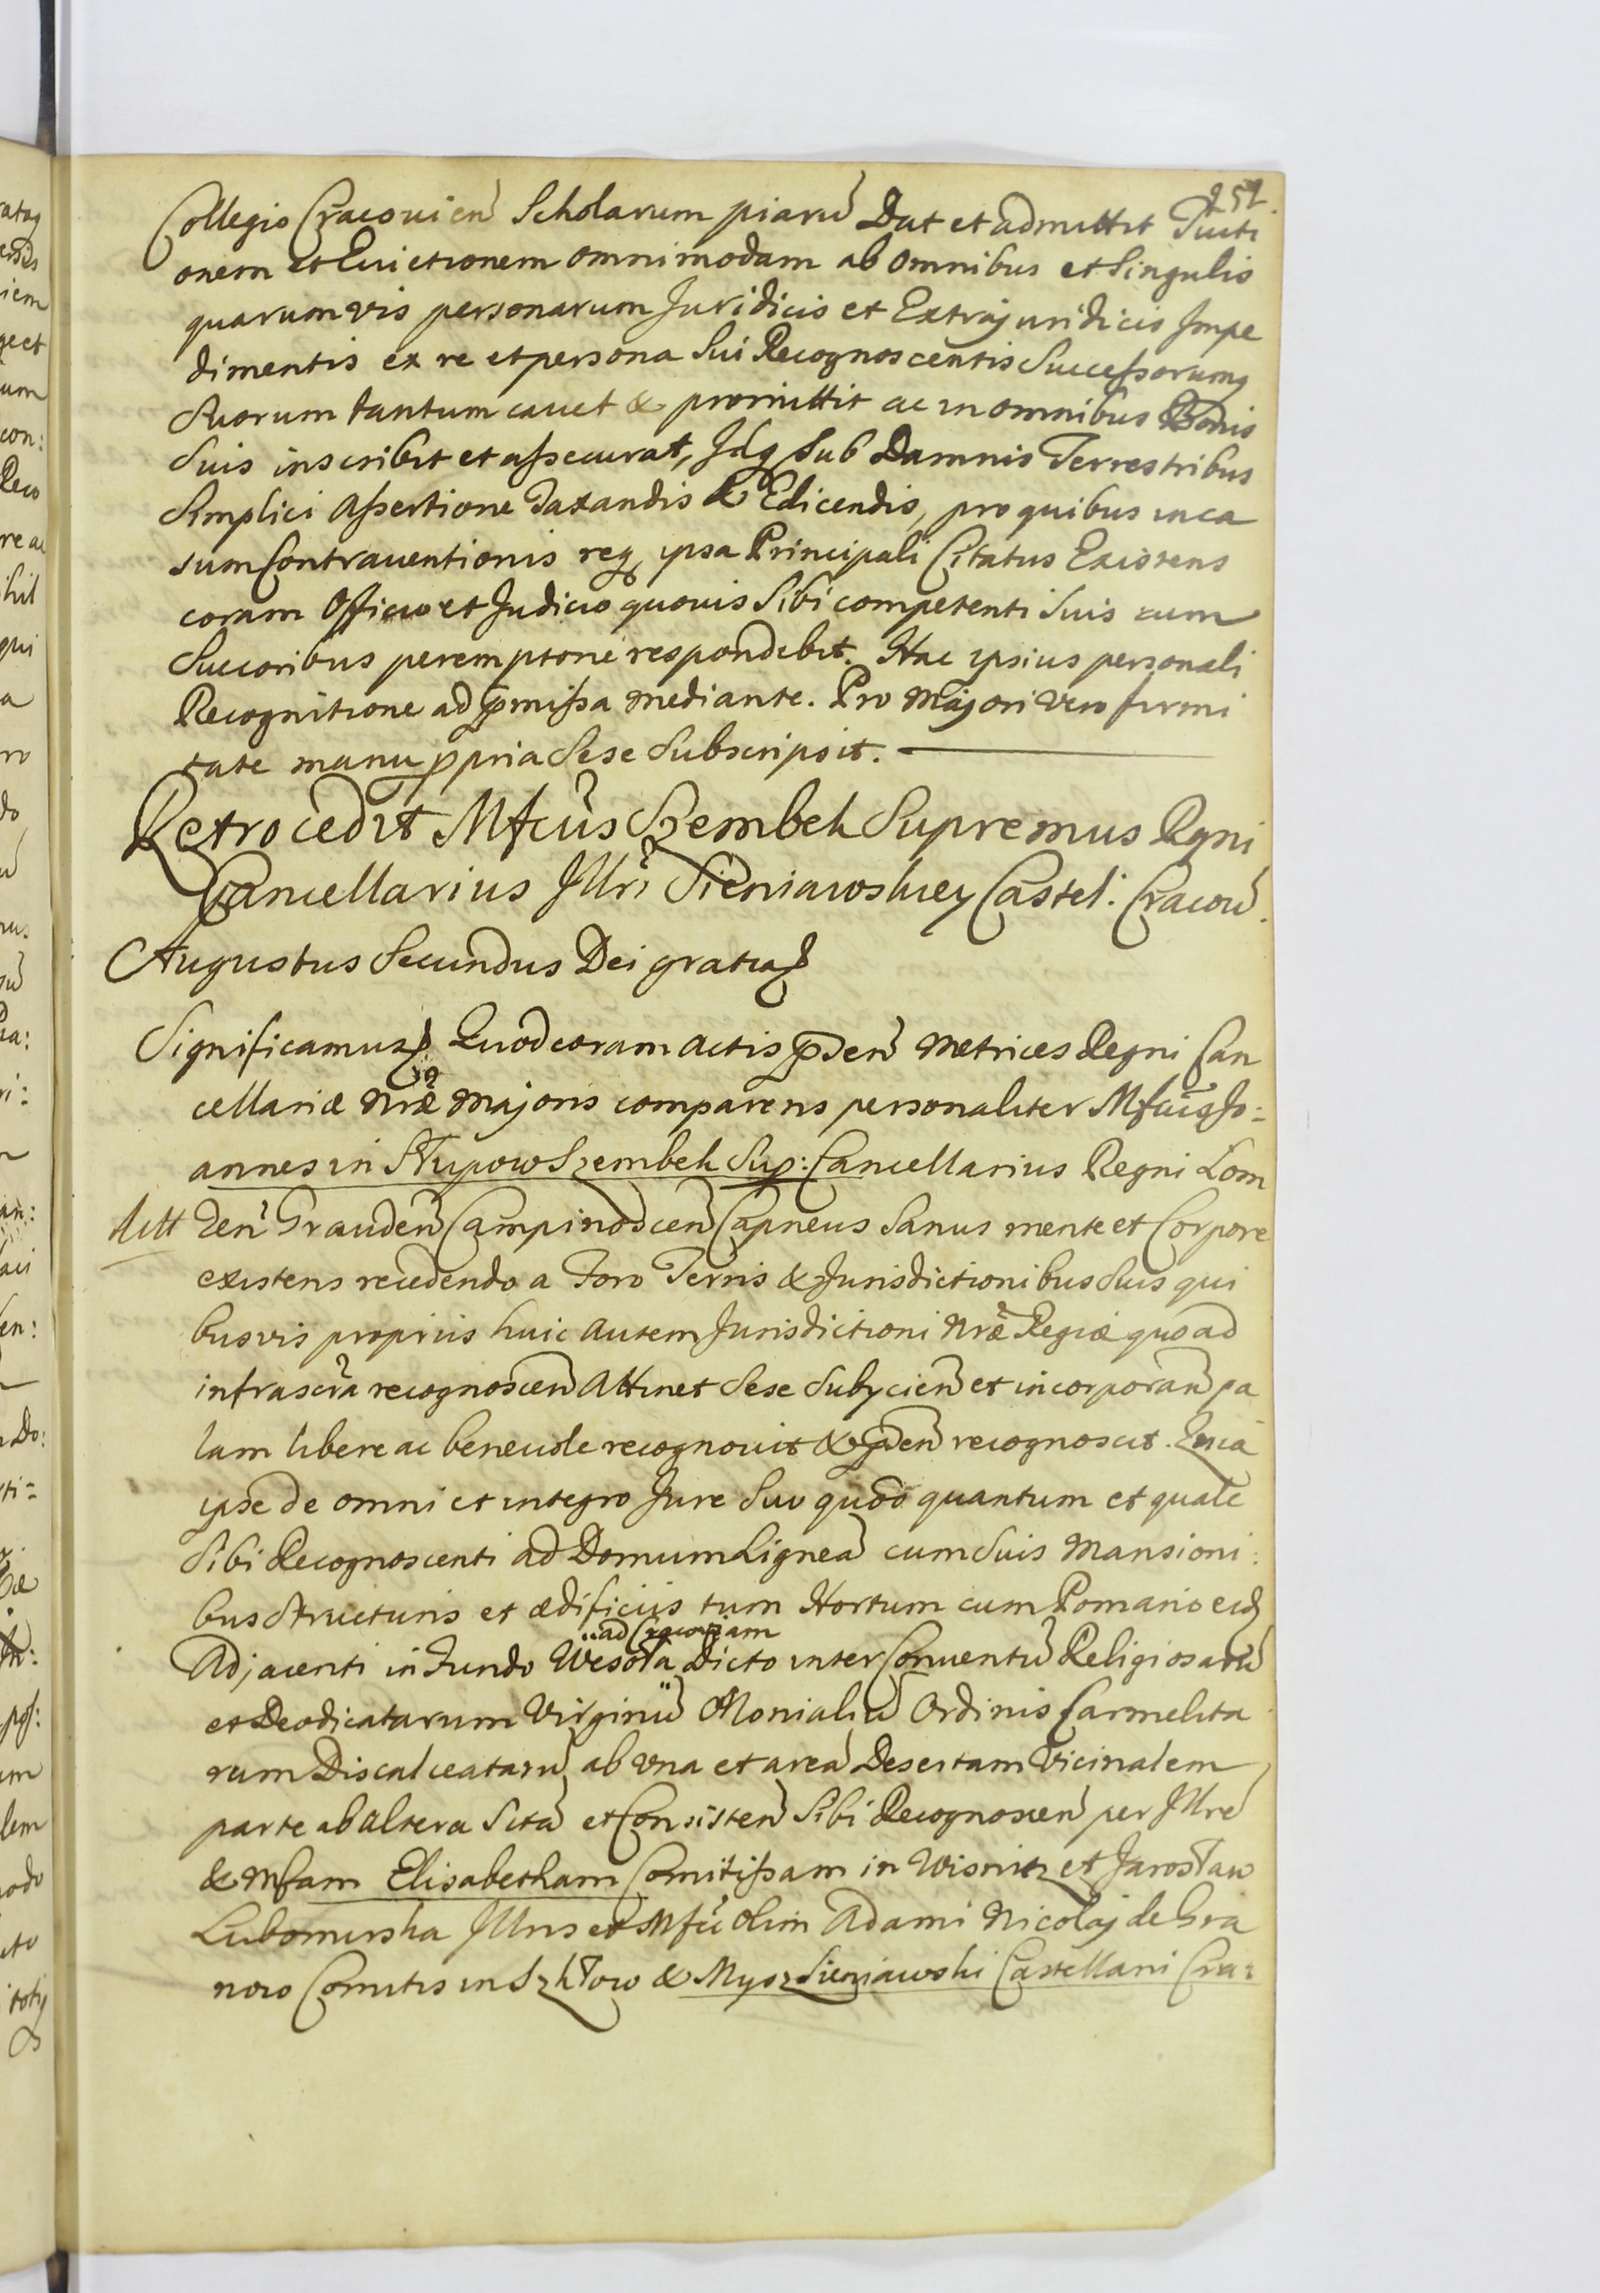 252.
Collegio Cracovien Scholarum piarū Dat et admittit Tuiti
onem et Evictionem omnimodam ab omnibus et Singulis
quarumvis personarum Juridicis et Extrajuridicis Impe
dimentis ex re et persona Sui Recognoscentis Successorumq
Suorum tantum cavet & promittit ac in omnibus Bonis
Suis inscribit et assecurat, Idq sub Damnis Terrestribus
Simplici Assertione Taxandis & Edicendis, pro quibus in ca
sum Contraventionis req ipsa Principali Citatus Existens
coram Officio et Judicio quovis Sibi competenti Suis cum
Succoribus peremptorie respondebit. Hac ipsius personali
Recognitione ad pmissa mediante. Pro Majori vero firmi
tate manu ppria Sese Subscripsit.
Retrocedit Mfcus Szembek Supremus Rgni
Cancellarius Illri Sieniawskiey Castel: Cracow.
Augustus Secundus Dei gratia
Significamus Quod coram Actis pden Metrices Regni Can
cellariæ Nræ Majoris comparens personaliter Mfcus Jo=
annes in Słupow Szembek Sup: Cancellarius Regni Lom
zen Grauden Campinoscen Capneus Sanus mente et Corpore
existens recedendo a Foro Terris & Jurisdictionibus Suis qui
busvis propriis huic autem Jurisdictioni Nræ Regiæ quoad
infrascra recognoscen Attinet Sese Subjicien et incorporan pa
lam libere ac benevole recognovit & pden recognoscit. Quia
ipse de omni et integro Jure Suo quod quantum et quale
Sibi Recognoscenti ad Domum Ligneā cum Suis Mansioni:
bus Structuris et ædificiis tum Hortum cum Pomario eid
ad Cracoviam
Adjacenti in Fundo Wesoła Dicto inter Conventū Religiosarū
et Deodicatarum Virginū Monialiū Ordinis Carmelita
rum Discalceatarū ab una et areā Desertam Vicinalem
parte ab altera Sitā et Consisten Sibi Recognoscen per Illre
& Mfam Elisabetham Comitissam in Wisnicz et Jarosław
Lubomirska Illris et Mfci Olim Adami Nicolaj de Gra
now Comitis in Szkłow & Mysz Sieniawski Castellani Cra: